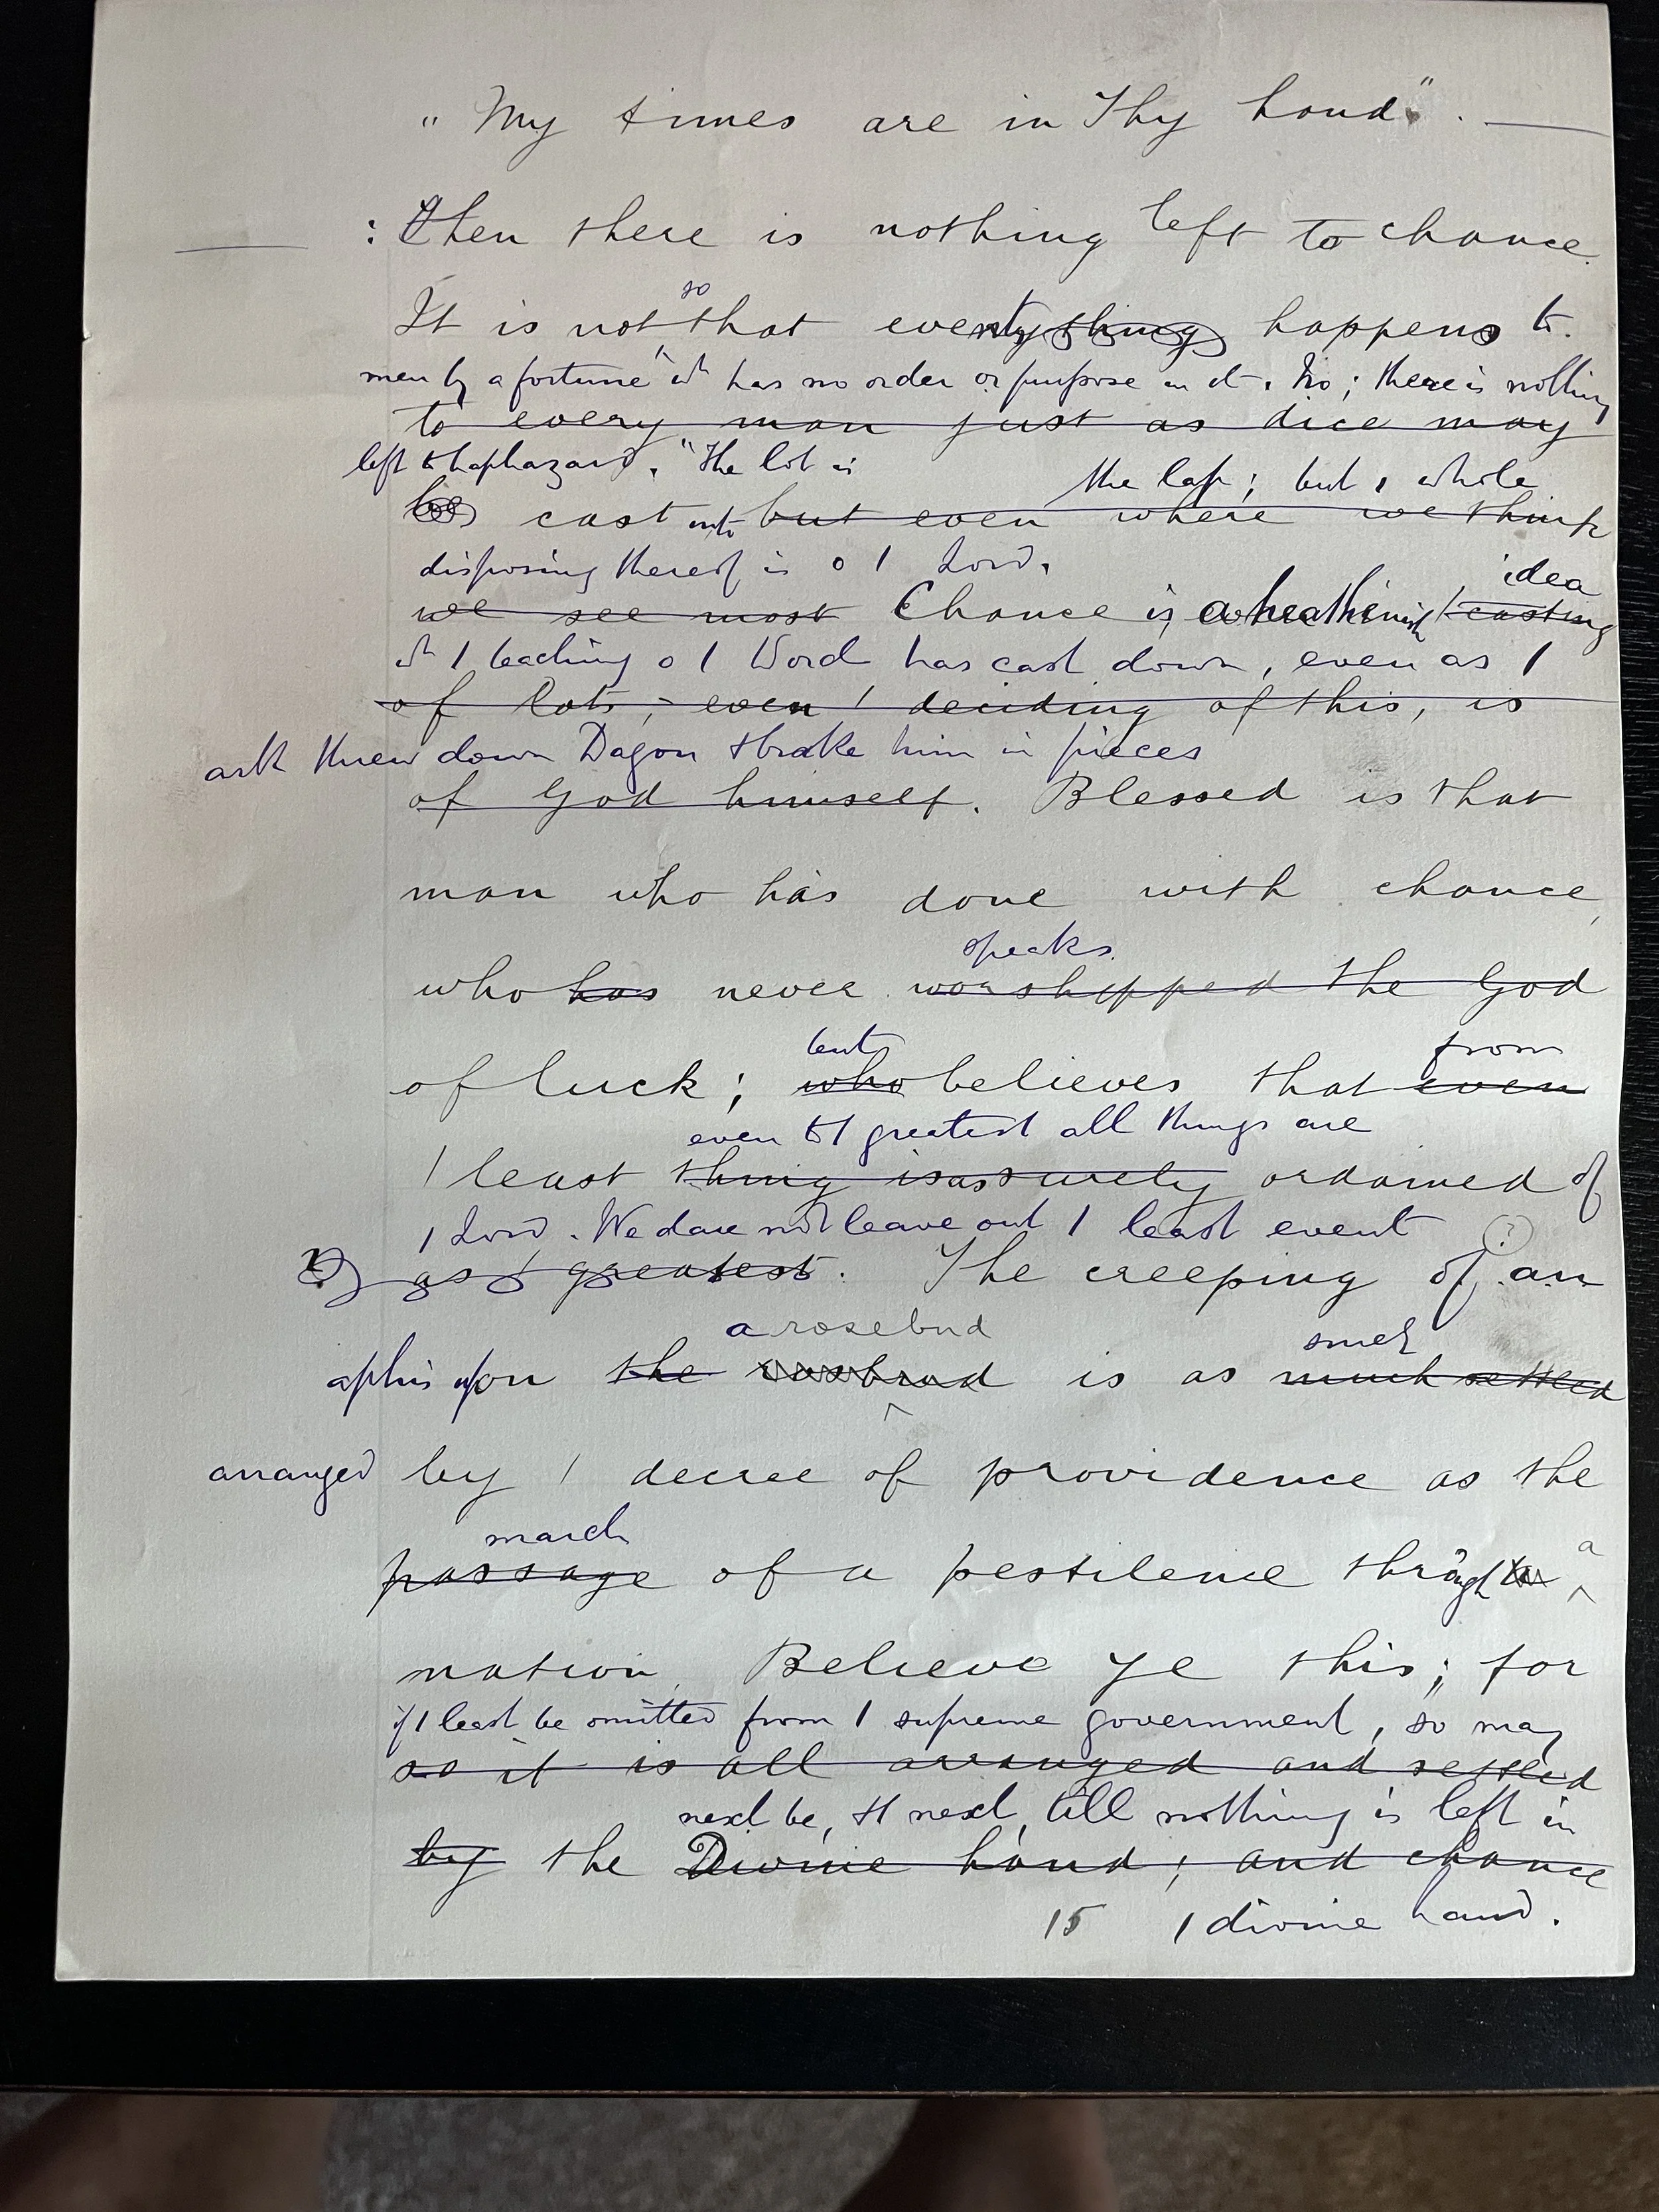 "My times are in Thy hand".
: then there is nothing left to chance.
so
It is not that events happens to
men by a fortune wh has no order or purpose in it. No; there is nothing
to every man just as dice may
left to haphazard. "The lot is
the lap; but 1 whole
cast into but even where we think
disposing thereof is o 1 Lord.
idea
we see most Chance is a heathenish casting
wh 1 teaching o 1 Word has cast down, even as 1
of lots, - even 1 deciding of this, is
ark threw down Dagon & brake him in pieces
of God himself. Blessed is that
man who has done with chance,
speaks
who has never worshipped the God
but from
of luck; who believes that even
even to 1 greatest all things are
1 least thing is as surely ordained of
1 Lord. We dare not leave out 1 least event
(?)
as 1 greatest. The creeping of an
a rosebud
much
aphis upon the rosebud is as much settled
arranged by 1 decree of providence as the
march
passage of a pestilence through a
nation. Believe ye this; for
if 1 least be omitted from 1 supreme government, so may
so it is all arranged and settled
next be, & 1 next, till nothing is left in
by the Divine hand; and chance
15 1 divine hand.